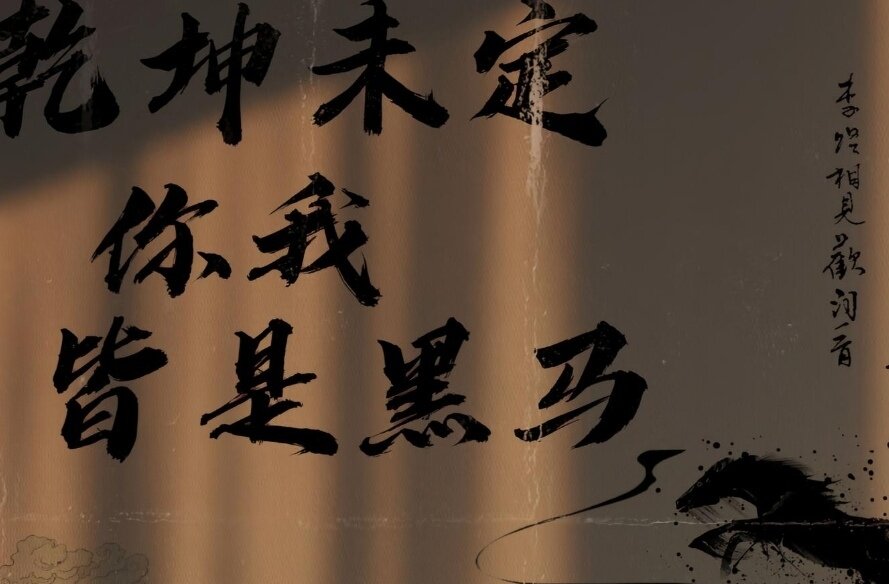 乾坤未定
你我
皆是黑马
李煜相見歡词二首